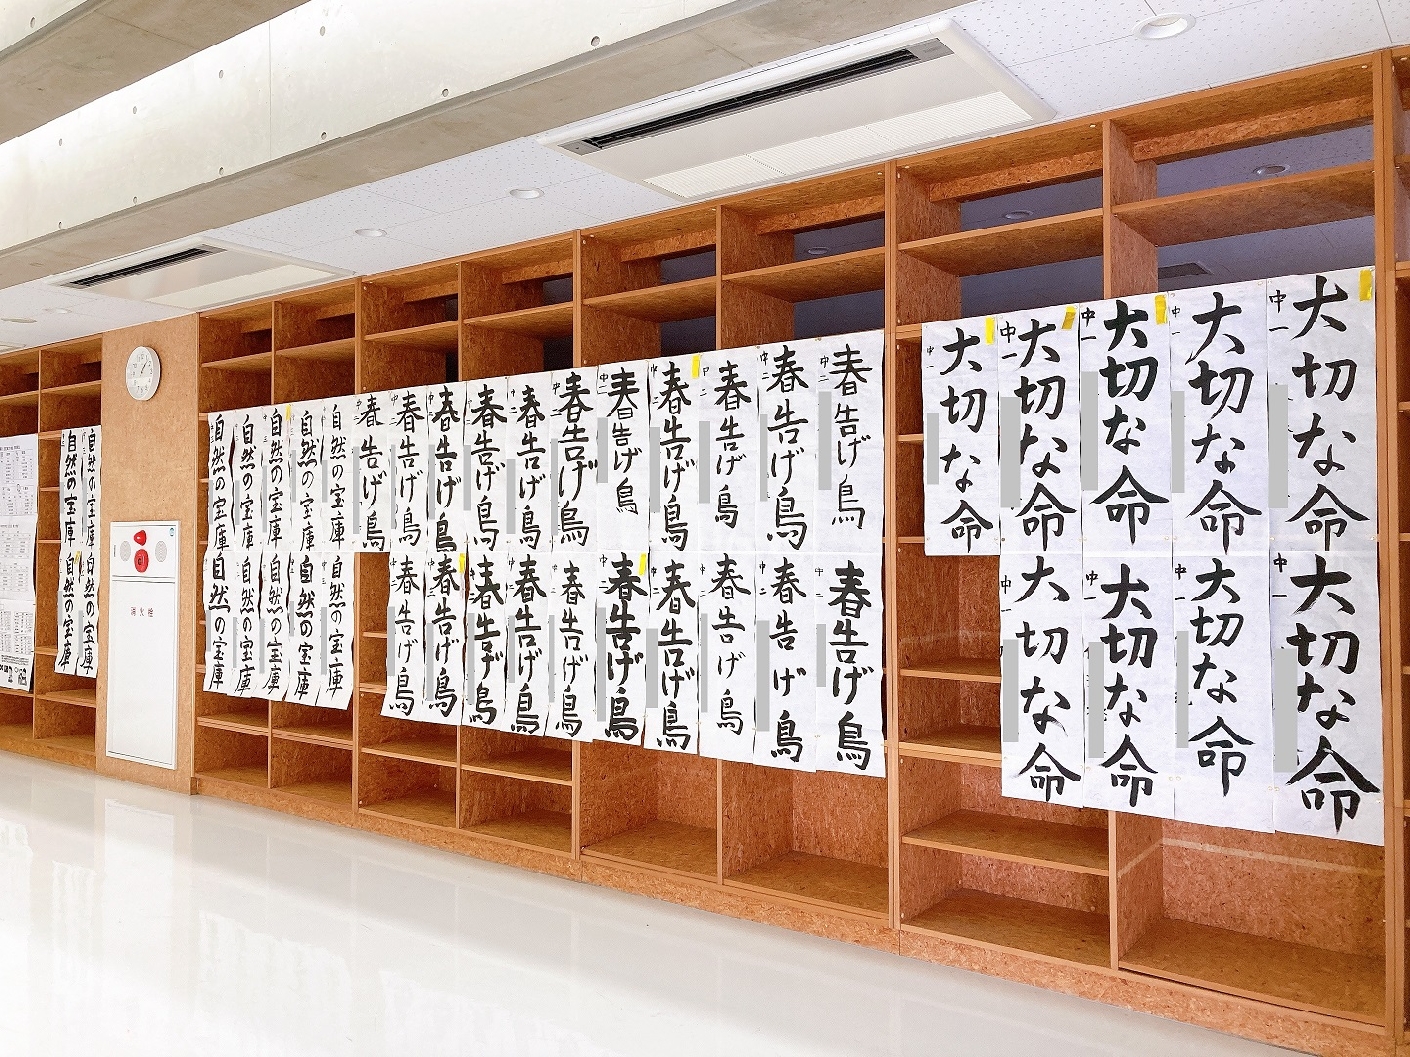 大切な命
中一
大切な命
中一
大切な命
中一
大切な命
中一
大切な命
中一
大切な命
中一
大切な命
中一
大切な命
中一
大切な命
中一
春告げ鳥
中二
春告げ鳥
中二
春告げ鳥
中二
春告げ鳥
中二
春告げ鳥
中二
春告げ鳥
中二
春告げ鳥
中二
春告げ鳥
中二
春告げ鳥
中二
春告げ鳥
春告げ鳥
中二
春告げ鳥
中二
春告げ鳥
中二
春告げ鳥
中二
春告げ鳥
中二
春告げ鳥
中二
春告げ鳥
中二
春告げ鳥
中二
春告げ鳥
中二
春告げ鳥
中二
春告げ鳥
中二
自然の宝庫
自然の宝庫
自然の宝庫
自然の宝庫
自然の宝庫
自然の宝庫
自然の宝庫
自然の宝庫
自然の宝庫
自然の宝庫
消火栓
自然の宝庫
自然の宝庫
自然の宝庫
自然の宝庫